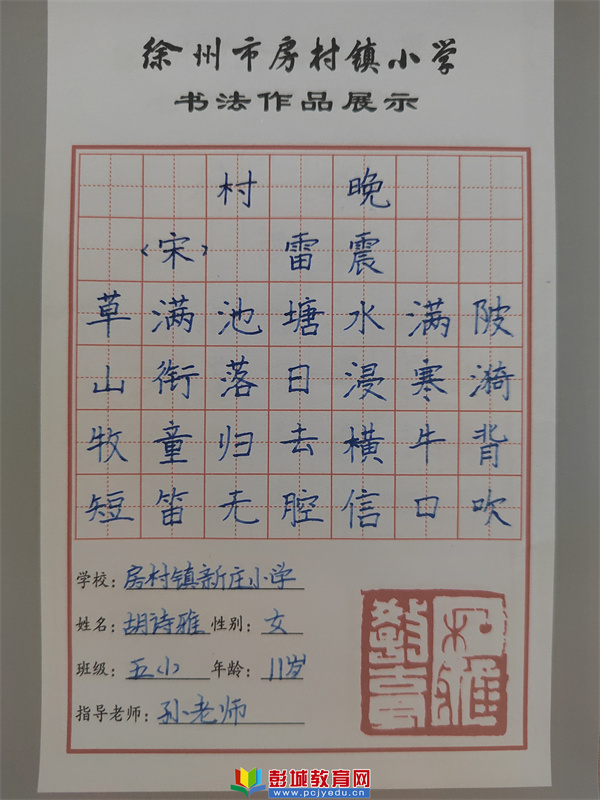 徐州市房村镇小学
书法作品展示
村晚
〈宋〉雷震
草满池塘水满陂
山衔落日浸寒漪
牧童归去横牛背
短笛无腔信口吹
学校：房村镇新庄小学
姓名：胡诗雅 性别：女
班级：五(1) 年龄：11岁
指导老师：孙老师
彭城教育网
www.pcjyedu.cn